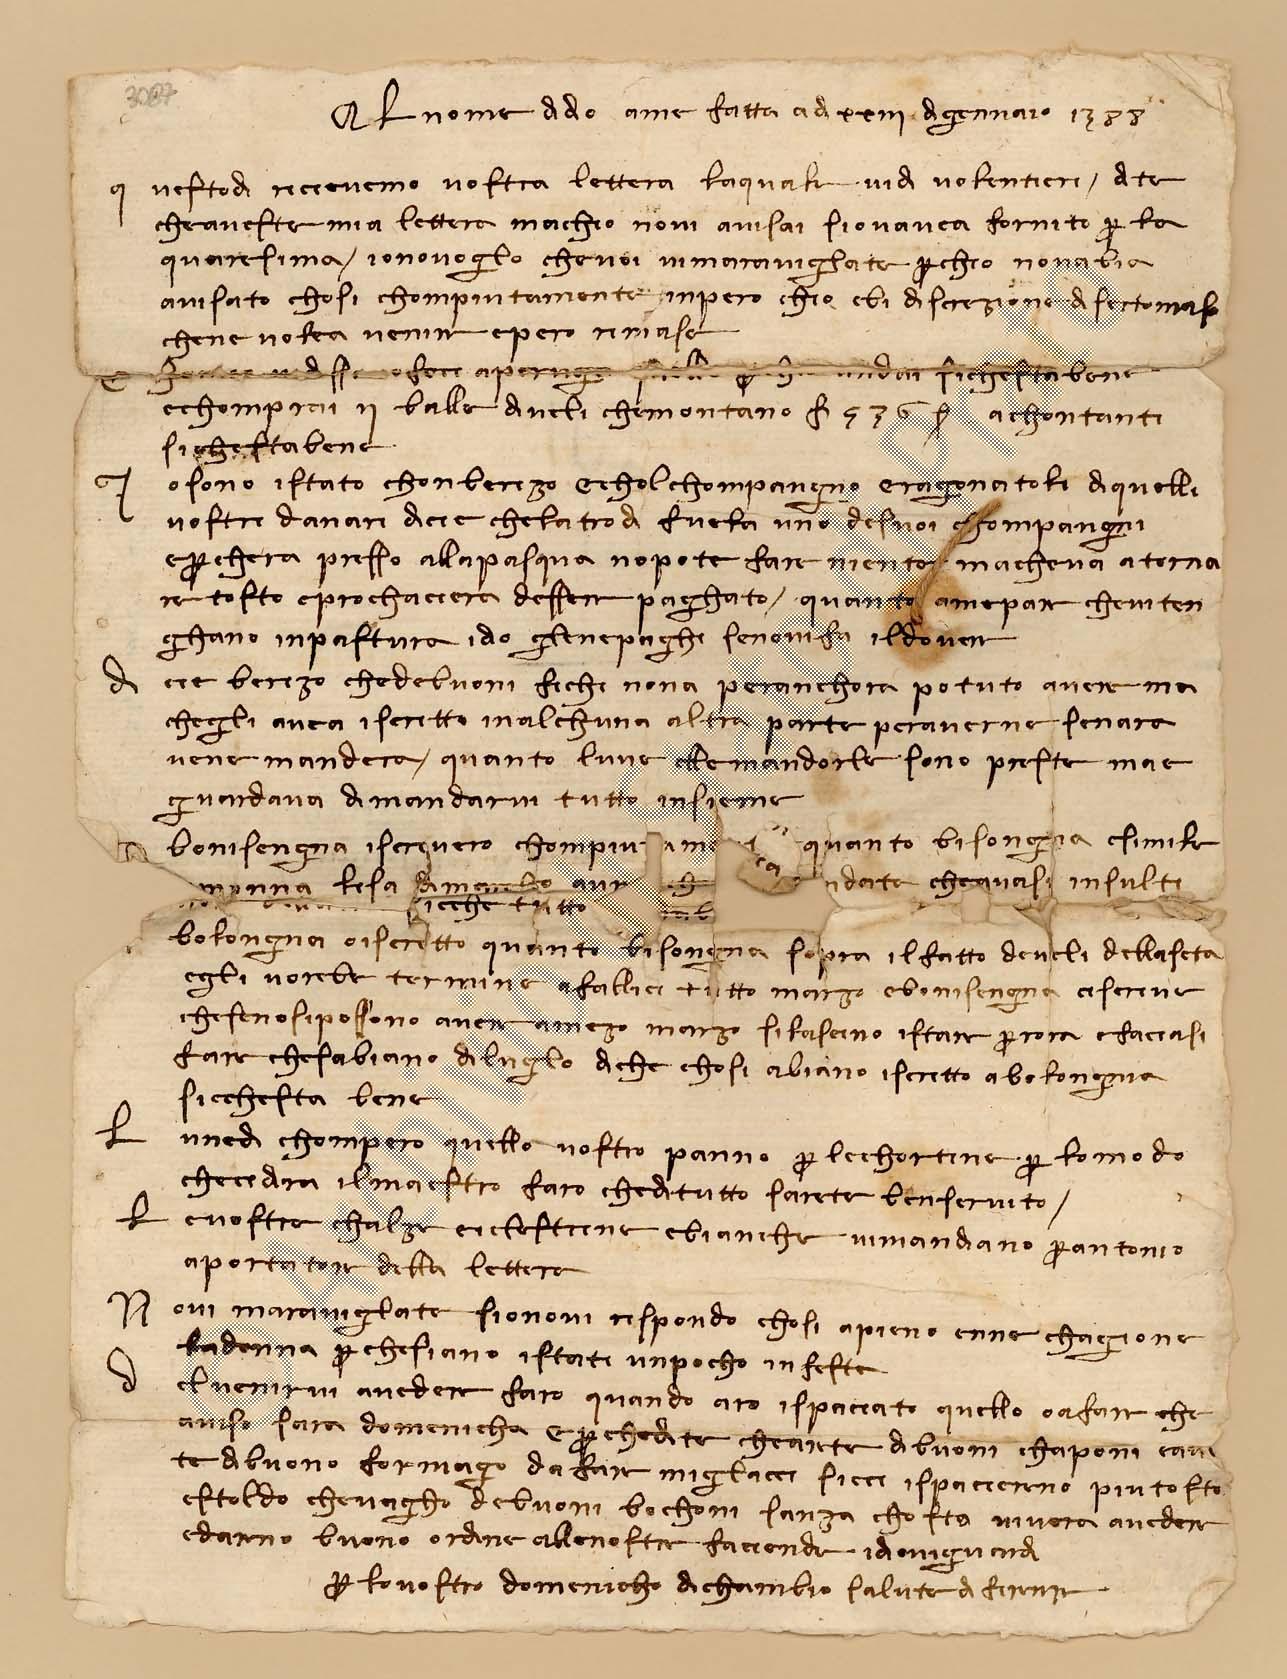 3087
Al nome di dio ame fatta a dì xxiii di gennaio 1388
q uesto dì ricievemo vostra lettera laquale vidi volentieri / dite
che aveste mia lettera ma chio no vi avisai sio vavea fornito per la
quaresima / io no voglo che voi vi maraviglate per chio no v abia
avisato chosi chompiutamente inpero chio ebi discrezione di ser tomaso
che ne volea venire e pero rimase
aperugia mandai sì che sta bene
e chomprai ii balle di veli che montano f 536 a chontanti
si che sta bene
I o sono istato chon berizo e chol chompangno e ragionatoli di quelli
vostri danari dicie che latro dì fu ela uno de suoi chompangni
e per chera presso alla pasqua no pote fare niente ma cheva a torna
re tosto e prochaciera desser paghato / quanto a me par che vi ten
ghano in pastura idio gle ne paghi se no vi fa il dover
d icie berizo che de buoni fichi non a per anchora potuto avere ma
chegli avea iscritto in alchuna altra parte per averne se nara
ve ne mandera / quanto luve elle mandorle sono preste ma e
guardava di mandarvi tutto insieme
bonisengna iscrivero chompiu quanto bisongna e simile
manna lisa insulti
sicche tutto
bolongna o iscritto quanto bisongna sopra il fatto de veli della seta
egli vorebe termine a fallici tutto marzo e bonisengna ci scrive
che se no si possono aver a mezo marzo si lascino istare per ora e facciasi
fare che sabiano di luglo di che chosi abiano iscritto a bolongnia
sicche sta bene
L unedi chompero quello vostro panno per le chortine per lo modo
che ci dira il maestro faro che di tutto sarete ben servito /
L e vostre chalze cilestrine e bianche vi mandiano per antonio
aportatore della lettera
N o vi maraviglate sio no vi rispondo chosi apieno enne chagione
la donna per che siano istati un pocho in feste
d el venirvi a vedere faro quando aro ispacciato quello o a fare che
aviso sara domenicha e per che dite che arete di buoni chaponi
te di buono formagio da fare miglacci sicci ispaccieremo piu tosto
e stoldo che vagho de buoni bochoni sanza chosta vi verra a vedere
e daremo buono ordine alle nostre faciende idio vi guardi
per lo vostro domenicho di chambio salute di firenze